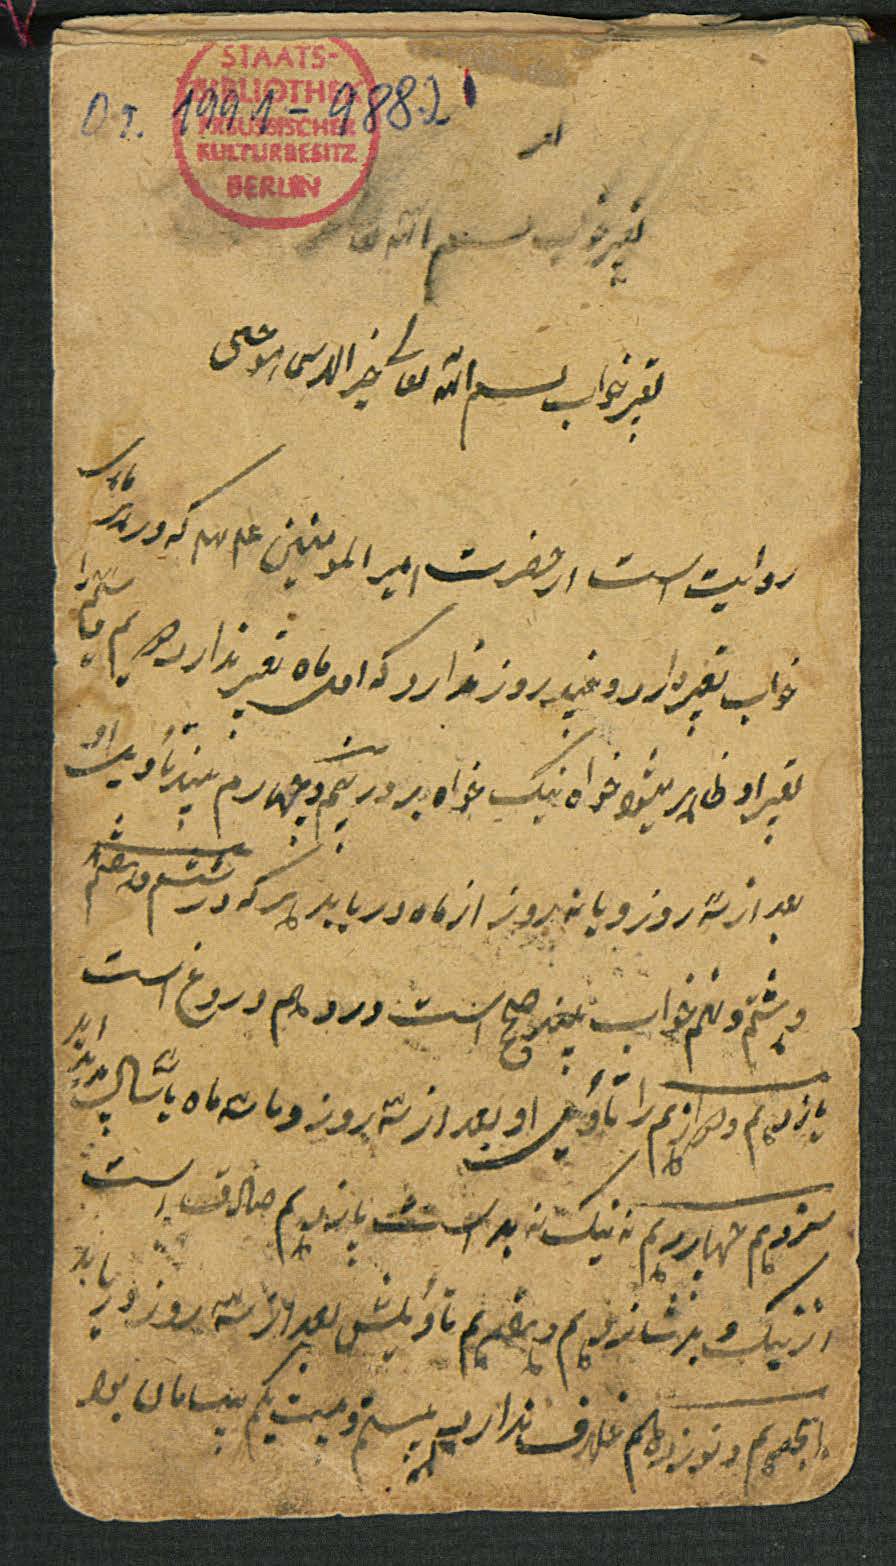 STAATS-
BIBLIOTHEK
PREUSSISCHER
KULTURBESITZ
BERLIN
Or. 1991-9882
تعبیر خواب بسم الله
تعبیر خواب بسم الله تعالی خیر
روایت است از حضرت امیر المومنین که در
خواب تعبیر دارد و روز ندارد که اول ماه تعبیر ندارد
تعبیر او ظاهر بیشود خواه نیک خواه بد در سیم و چهارم تاویل او
بعد از سه روز و یا نه روز از ماه در یابد هر که در ششم و هفتم
و هشتم و نهم خواب بیند صحیح است در دهم دروغ است
یازدهم و دوازدهم را تاویل او بعد از سه روز و یا سه ماه یا سال پدید آید
سیزدهم چهاردهم نه نیک نه بد است پانزدهم صادق است
از نیک و بد شانزدهم و هفدهم تاویلش بعد از سه روز در یابد
هجدهم و نوزدهم خلاف ندارد بیستم و بیست یکم پیسامان بود